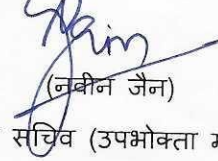 (नवीन जैन)
सचिव (उपभोक्ता